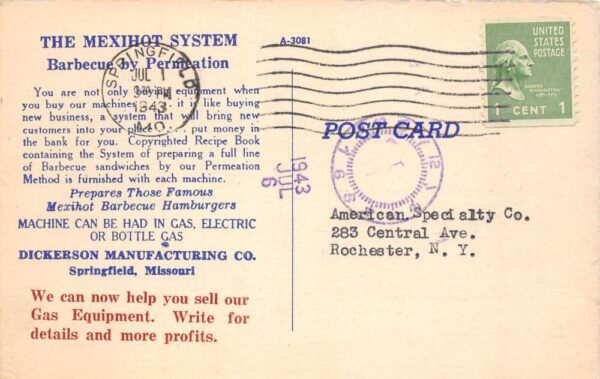 THE MEXIHOT SYSTEM
Barbecue by Permeation
You are not only buying equipment when
you buy our machines, it is like buying
new business, a system that will bring new
customers into your put money in
the bank for you. Copyrighted Recipe Book
containing the System of preparing a full line
of Barbecue sandwiches by our Permeation
Method is furnished with each machine.
Prepares Those Famous
Mexihot Barbecue Hamburgers
MACHINE CAN BE HAD IN GAS, ELECTRIC
OR BOTTLE GAS
DICKERSON MANUFACTURING CO.
Springfield, Missouri
We can now help you sell our
Gas Equipment. Write for
details and more profits.
SPRINGFIELD
JUL 1
PM
1943
MO.
A-3081
1943
JUL
6
POST CARD
12 1
UNITED
STATES
POSTAGE
GEORGE
WASHINGTON
1 CENT 1
American Specialty Co.
283 Central Ave.
Rochester, N. Y.